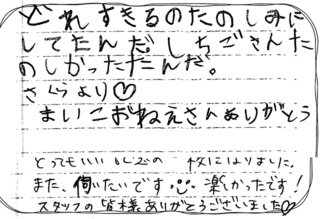 どれすきるのたのしみに
してたんだ。しちごさんた
のしかっただんだ。
さくらより♡
まいこおねえさんありがとう
とってもいい 枚になりました。
また、伺いたいです 楽しかったです！
スタッフの皆様ありがとうございました♡